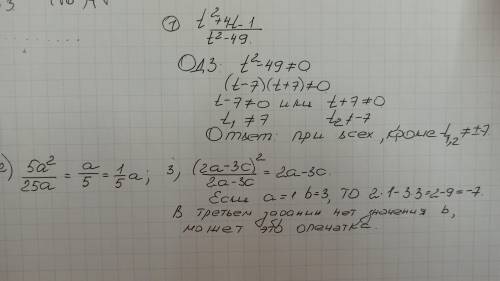 ① t²+4t-1 / t²-49.
ОДЗ: t²-49≠0
(t-7)(t+7)≠0
t-7≠0 или t+7≠0
t₁≠7 t₂≠-7
Ответ: при всех, кроме t₁,₂≠±7
2) 5a²/25a = a/5 = 1/5 a; 3) (2a-3c)²/2a-3c = 2a-3c.
Если a=1 b=3, ТО 2·1-3·3=2-9=-7.
В третьем задании нет значения b,
может это опечатка.